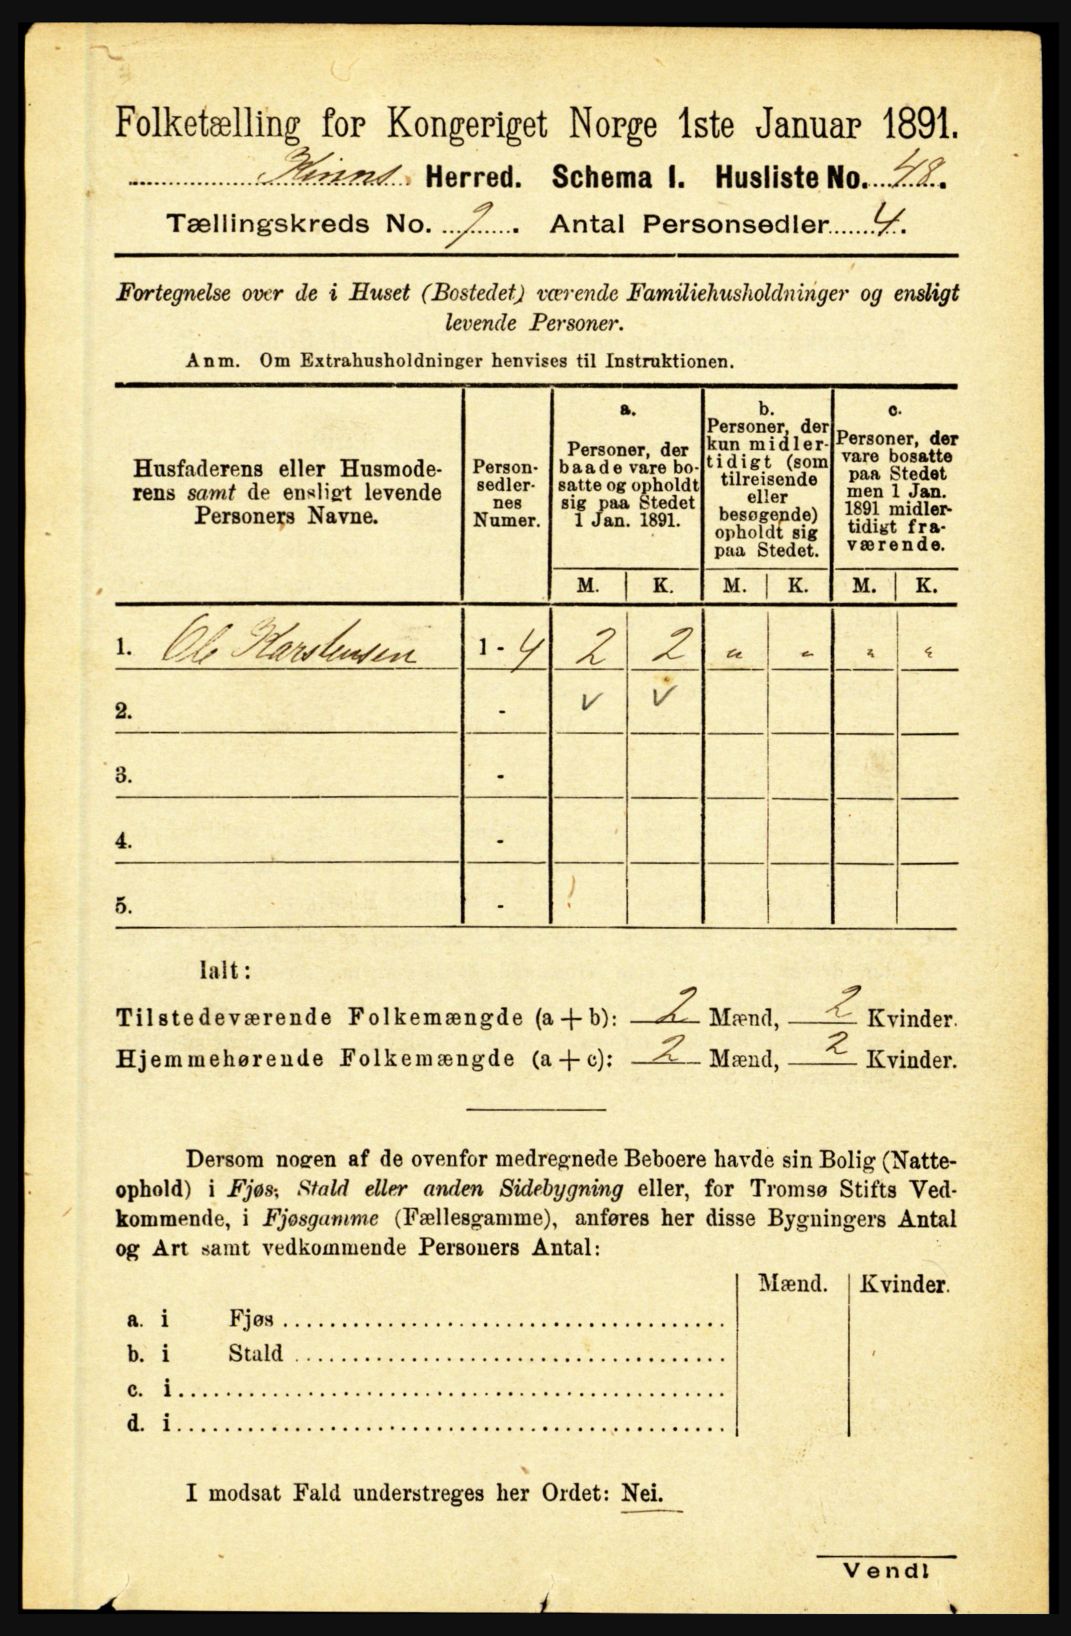 Folketælling for Kongeriget Norge 1ste Januar 1891.
Kinns Herred. Schema I. Husliste No. 48.
Tællingskreds No. 9. Antal Personsedler 4.
Fortegnelse over de i Huset (Bostedet) værende Familiehusholdninger og ensligt
levende Personer.
Anm. Om Extrahusholdninger henvises til Instruktionen.
Husfaderens eller Husmode-
rens samt de ensligt levende
Personers Navne.
Person-
sedler-
nes
Numer.
a.
Personer, der
baade vare bo-
satte og opholdt
sig paa Stedet
1 Jan. 1891.
b.
Personer, der
kun midler-
tidigt (som
tilreisende
eller
besøgende)
opholdt sig
paa Stedet.
c.
Personer, der
vare bosatte
paa Stedet
men 1 Jan.
1891 midler-
tidigt fra-
værende.
M. K. M. K. M. K.
1. Ole Karstensen 1 - 4 2 2 " " " "
2. - v v
3. -
4. -
5. -
Ialt:
Tilstedeværende Folkemængde (a + b): 2 Mænd, 2 Kvinder.
Hjemmehørende Folkemængde (a + c): 2 Mænd, 2 Kvinder.
Dersom nogen af de ovenfor medregnede Beboere havde sin Bolig (Natte-
ophold) i Fjøs, Stald eller anden Sidebygning eller, for Tromsø Stifts Ved-
kommende, i Fjøsgamme (Fællesgamme), anføres her disse Bygningers Antal
og Art samt vedkommende Personers Antal:
Mænd. Kvinder.
a. i Fjøs
b. i Stald
c. i
d. i
I modsat Fald understreges her Ordet: Nei.
Vend!